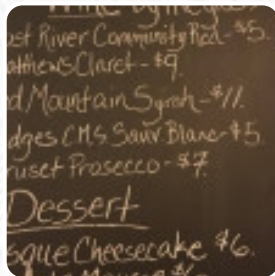 Wine by the glass
ost River Community Red - $5.
atthews Claret - $9.
d Mountain Syrah - $11.
dges CMS Sauv Blanc - $5
ruset Prosecco - $7.
Dessert
sque Cheesecake $6.